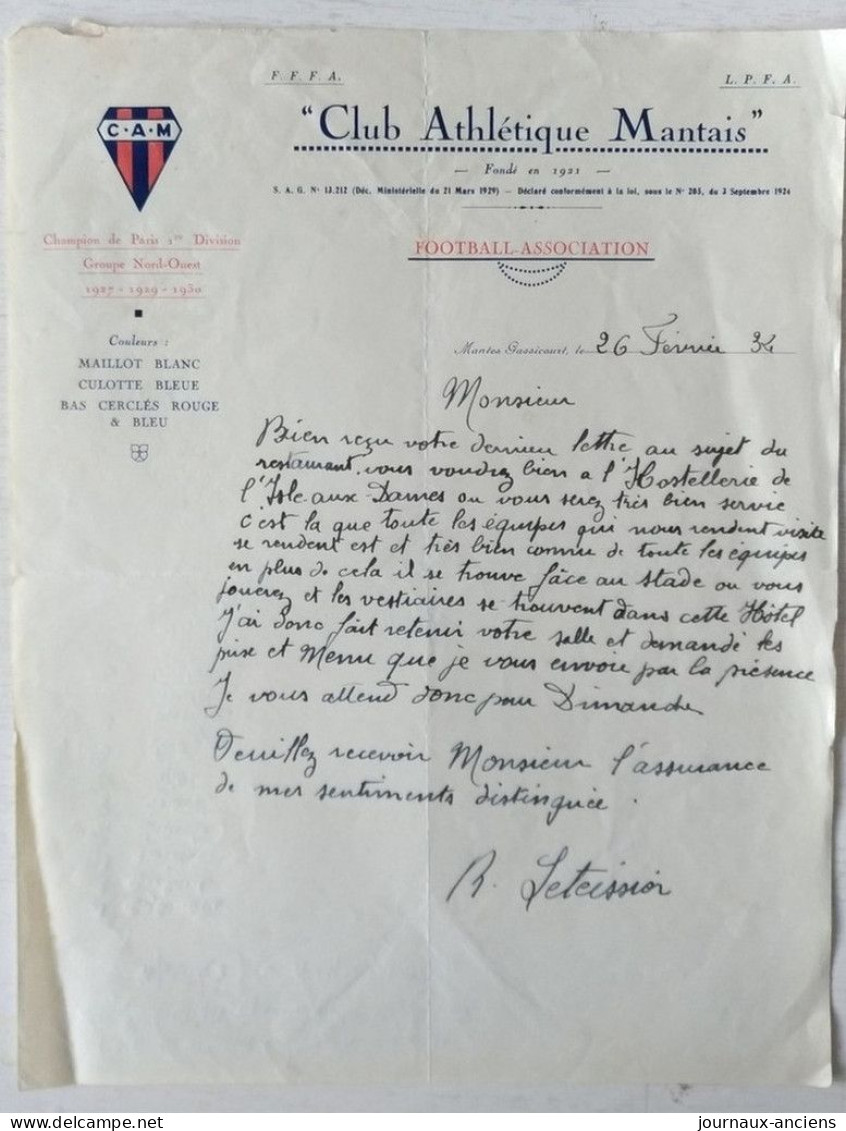 F. F. F. A.
L. P. F. A.
C·A·M
"Club Athlétique Mantais"
— Fondé en 1921 —
S. A. G. N° 13.212 (Déc. Ministérielle du 21 Mars 1929) — Déclaré conformément à la loi, sous le N° 203, du 3 Septembre 1924
Champion de Paris 1re Division
Groupe Nord-Ouest
1927 - 1929 - 1930
FOOTBALL-ASSOCIATION
Couleurs :
MAILLOT BLANC
CULOTTE BLEUE
BAS CERCLÉS ROUGE
& BLEU
Mantes Gassicourt, le 26 Février 34
Monsieur
Bien reçu votre dernier lettre au sujet du
restaurant, vous voudrez bien a l'Hostellerie de
l'Isle-aux-Dames ou vous serez très bien servie
c'est la que toute les équipes qui nous rendent visite
se rendent est et très bien connu de toute les équipes
en plus de cela il se trouve fâce au stade ou vous
jouerez et les vestiaires se trouvent dans cette Hôtel
J'ai donc fait retenir votre salle et demandé les
prix et Menu que je vous envoie par la présence
Je vous attend donc pour Dimanche
Veuillez recevoir Monsieur l'assurance
de mes sentiments distinguée.
R.
journaux-anciens
www.delcampe.net